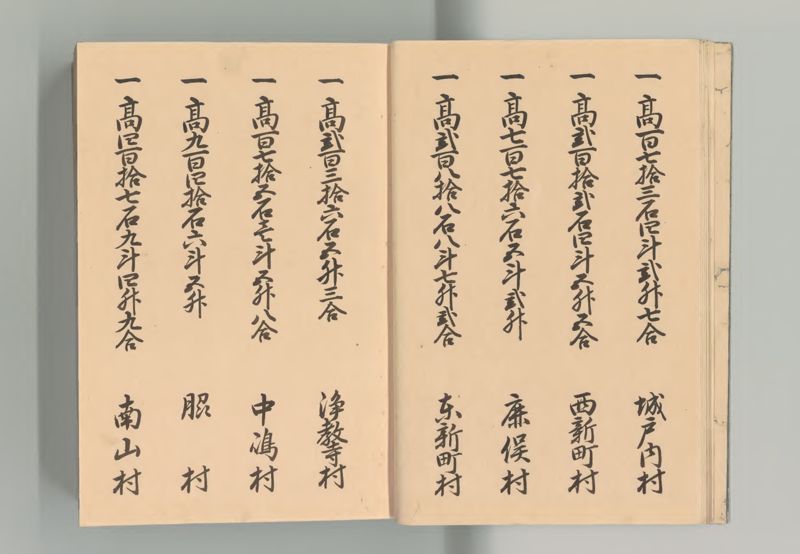 一高百七拾三石四斗弐升七合 城戸内村
一高弐百拾弐石四斗五升五合 西新町村
一高七百七拾六石五斗弐升 鹿俣村
一高弐百八拾八石八斗七升弐合 东新町村
一高弐百三拾六石五升三合 浄教寺村
一高百七拾五石壱斗五升八合 中嶋村
一高九百四拾石六斗五升 村
一高四百拾七石九斗四升九合 南山村